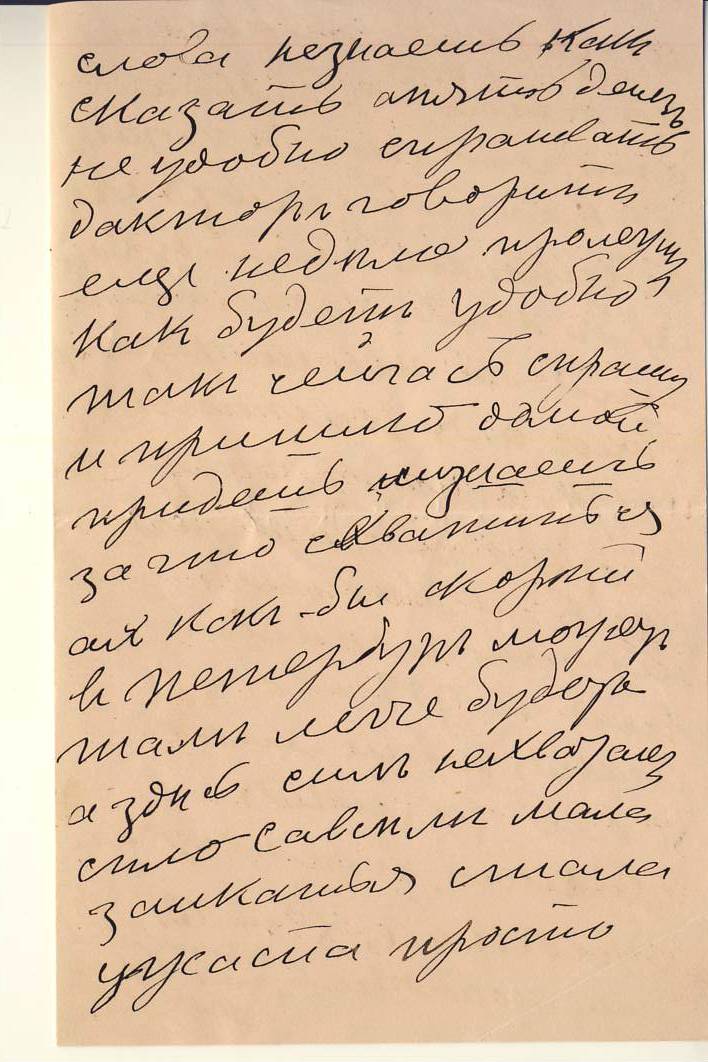 слова незнаешь какъ
сказать опять денег
не удобно спрашивать
дакторъ говорить
еще недѣлю пролежу
какъ будетъ удобно
такъ сейчасъ спрашу
и пришлю домой
придешь незнаешь
за что схватиться
ахъ какъ-бы скорѣй
въ Петербургъ может
тамъ легче будетъ
а здѣсь силъ нехватает
спло савсѣмъ мало
заикаться стала
ужаста просто